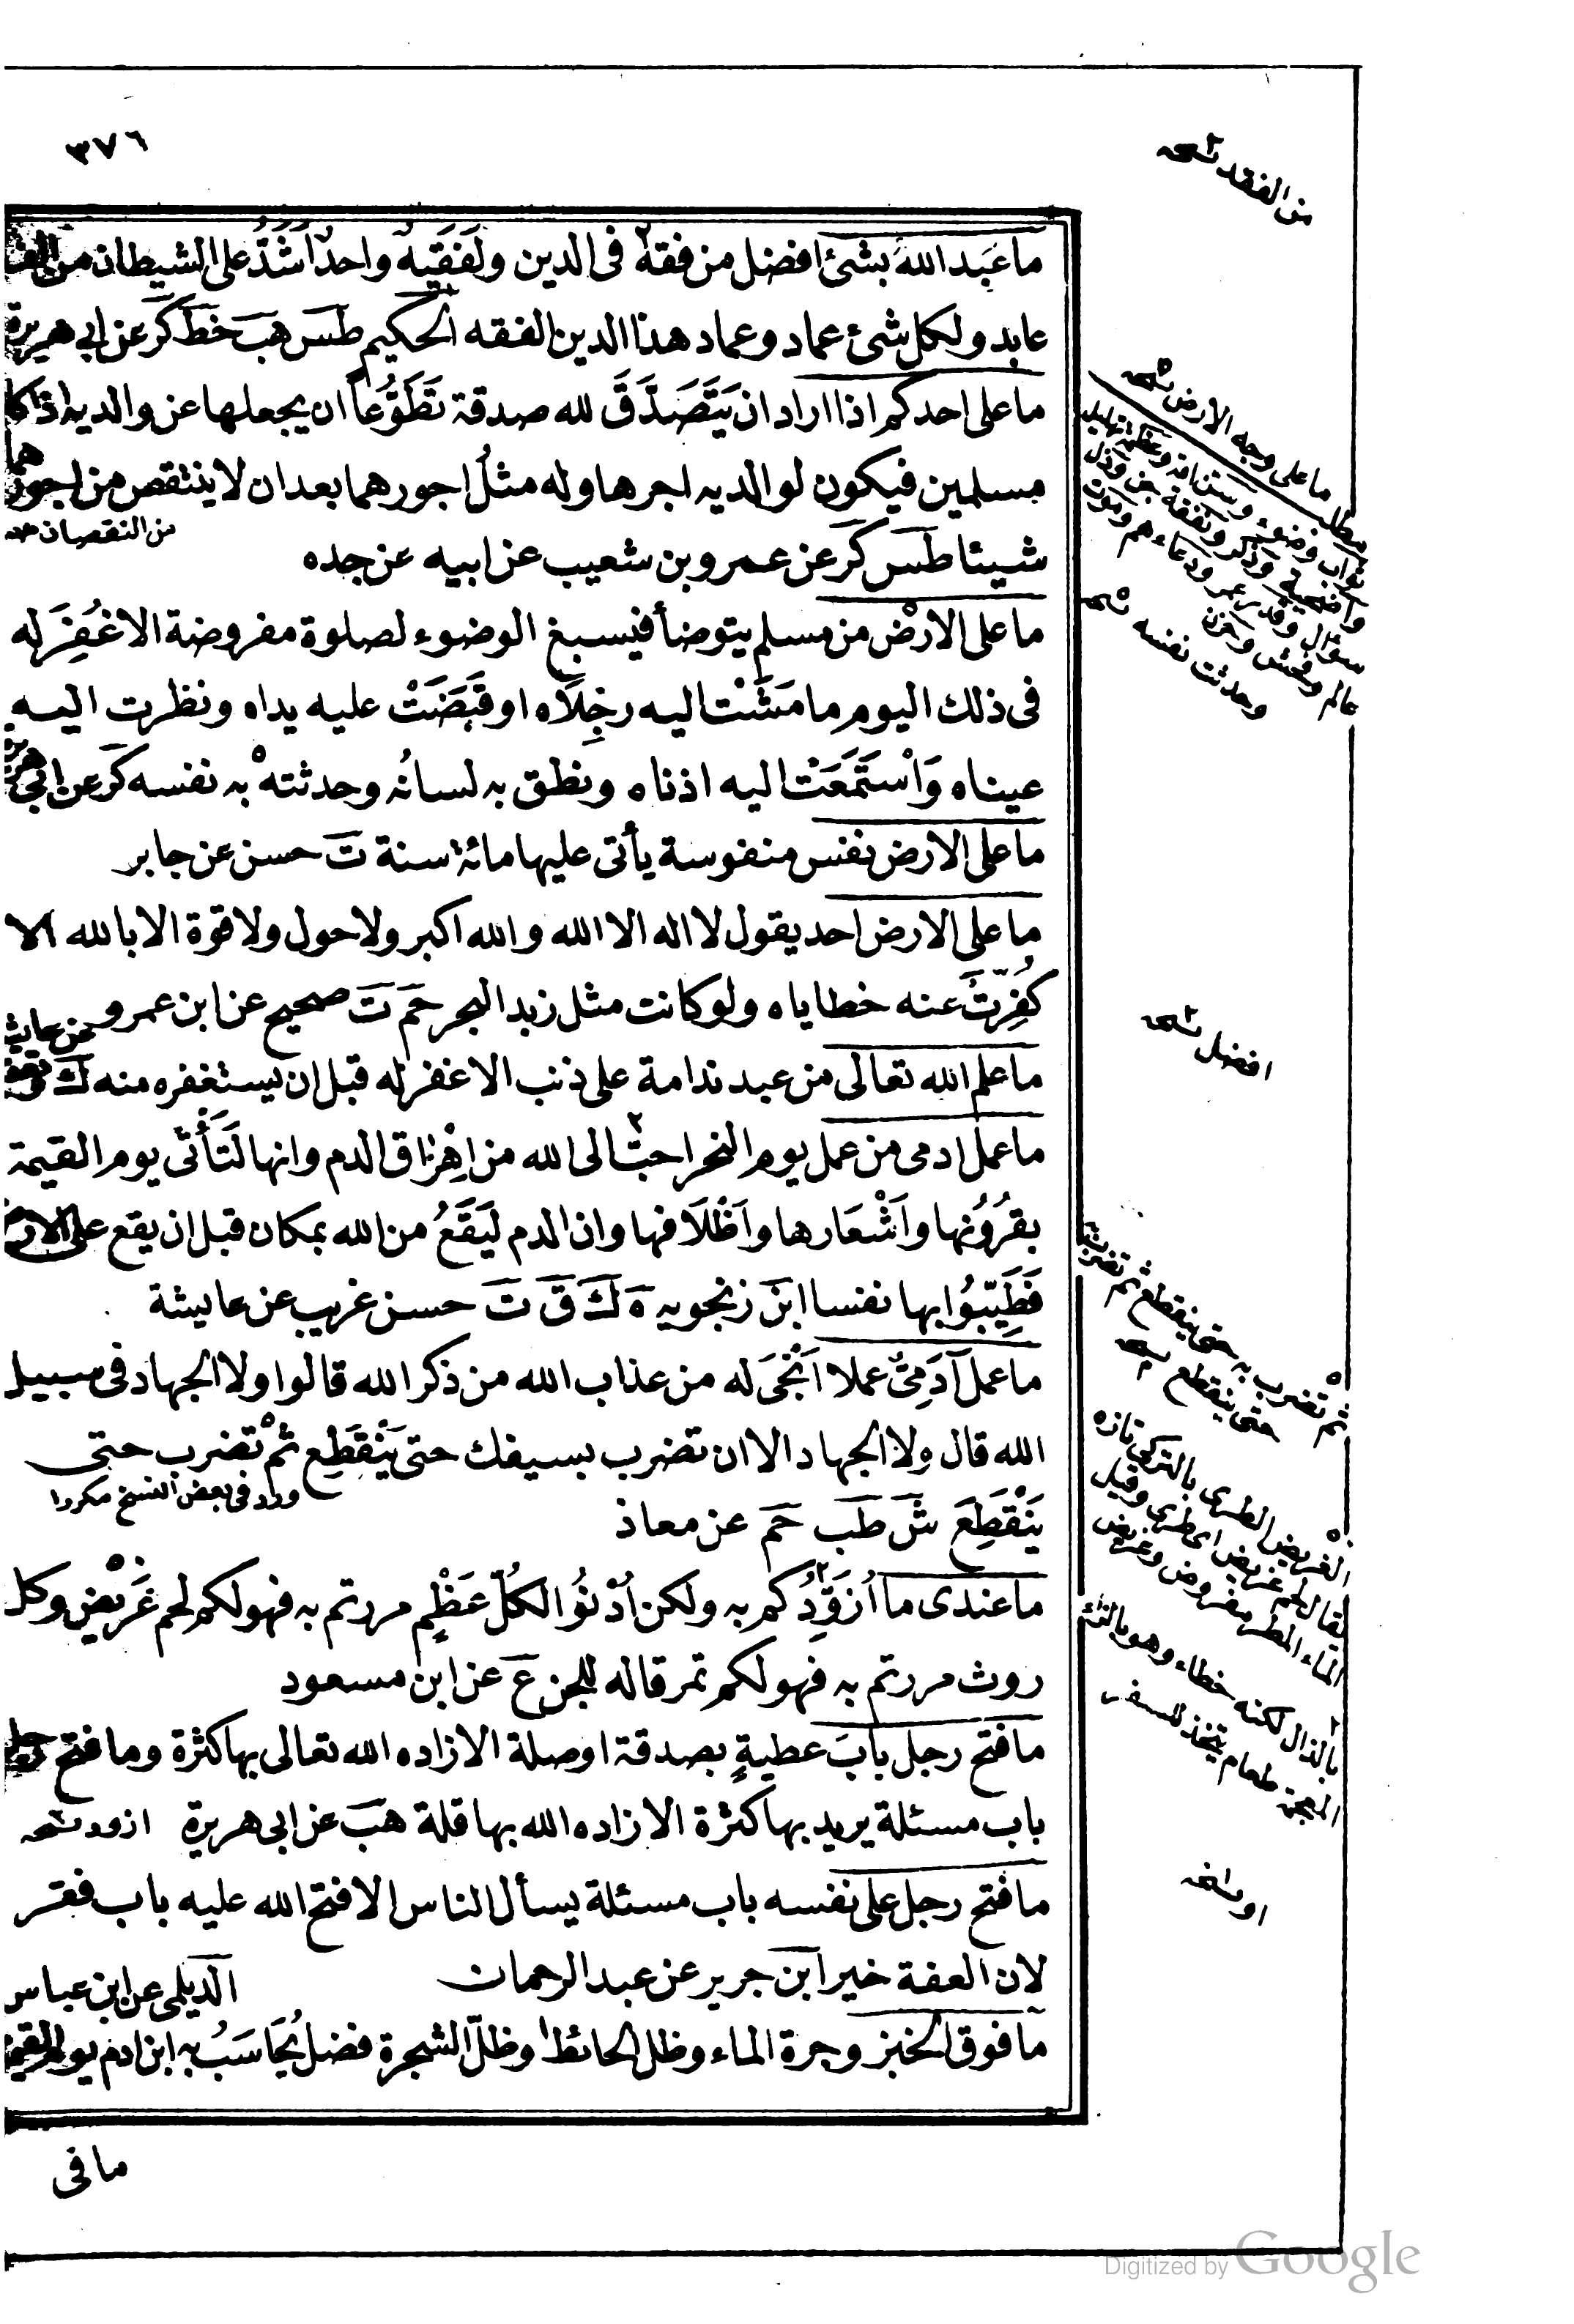 ٣٧٦
ما عَبد الله بشئ افضل من فقه فى الدين ولَفَقيه واحد اَشَدُّ على الشيطان من الف
عابد ولكل شئ عماد وعماد هذا الدين الفقه الحكيم طس هب خط كر عن ابى هريرة
ما على احدكم اذا اراد ان يَتَصَدَّقَ لله صدقة تَطَوُّعاً ان يجعلها عن والديه اذا كا
مسلمين فيكون لوالديه اجرها وله مثلُ اجورهما بعد ان لا ينتقص من اجورهما
من النقصان
شيئا طس كر عن عمرو بن شعيب عن ابيه عن جده
ما على الارْض من مسلم يتوضأ فيسبغ الوضوء لصلوة مفروضة الا غُفِرَ له
فى ذلك اليوم ما مَشَتْ اليه رجِلَاه او قَبَضَتْ عليه يداه ونظرت اليه
عيناه وَاسْتَمَعَتْ اليه اذناه ونطق به لسانُه وحدثته به نفسه كر عن ابى هريرة
ما على الارض نفس منفوسة يأتى عليها مائة سنة ت حسن عن جابر
ما على الارض احد يقول لا اله الا الله والله اكبر ولا حول ولا قوة الا بالله الا
كُفِّرَتْ عنه خطاياه ولو كانت مثل زبد البحر حم ت صحيح عن ابن عمرو
ما علم الله تعالى من عبد ندامة على ذنب الا غفر له قبل ان يستغفره منه ك
ما عمل ادمى من عمل يوم النحر احبّ الى الله من اِهْرَاق الدم وانها لَتَأْتى يوم القيمة
بقُرُونها واَشْعَارها واَظْلَافها وان الدم لَيَقَعُ من الله بمكان قبل ان يقع على الارض
فَطَيِّبُوا بها نفسا ابن زنجويه ه ك ق ت حسن غريب عن عايشة
ما عمل آدَمِىٌّ عملا اَنْجَى له من عذاب الله من ذكر الله قالوا ولا الجهاد فى سبيل
الله قال ولا الجهاد الا ان تضرب بسيفك حتى يَنْقَطِع ثم تضرب حتى
ورد فى بعض النسخ مكررا
يَنْقَطِعَ ش طب حم عن معاذ
ما عندى ما اُزَوِّدُكم به ولكن اُدْنُوا لكُلّ عَظْمٍ مررتم به فهو لكم لحم غَرِيْض وكل
روث مررتم به فهو لكم تمر قاله للجن ع عن ابن مسعود
ما فتح رجل بابَ عطيةٍ بصدقة او صلة الا زاده الله تعالى بها كثرة وما فتح رجل
باب مسئلة يريد بها كثرة الا زاده الله بها قلة هب عن ابى هريرة ازود نسخه
ما فتح رجل على نفسه باب مسئلة يسأل الناس الا فتح الله عليه باب فقر
لان العفة خير ابن جرير عن عبد الرحمان الديلمى عن ابن عباس
ما فوق الخبز وجرة الماء وظل الحائط وظلّ الشجرة فضل يُحَاسَبُ به ابن ادم يوم القيمة
ما فى
من الفقه نسخه
ما على وجه الارض نسخه
وحدثت نفسه نسخه
افضل نسخه
ثم تضرب به حتى ينقطع ثم تضرب
حتى ينقطع نسخه
الغريض الطرى بالتركى تازه
يقال لحم غريض اى طرى وقيل
الماء المطر مفروض وغريض
بالذال لكنه خطاء وهو بالثئ
المعجمة طعام يتخذ للسفر
او نسخه
Digitized by Google